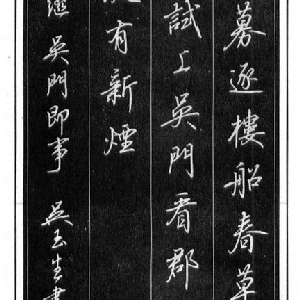 募逐樓船春草
試上吳門看郡
有新煙
繼 吳門即事 吳玉生書